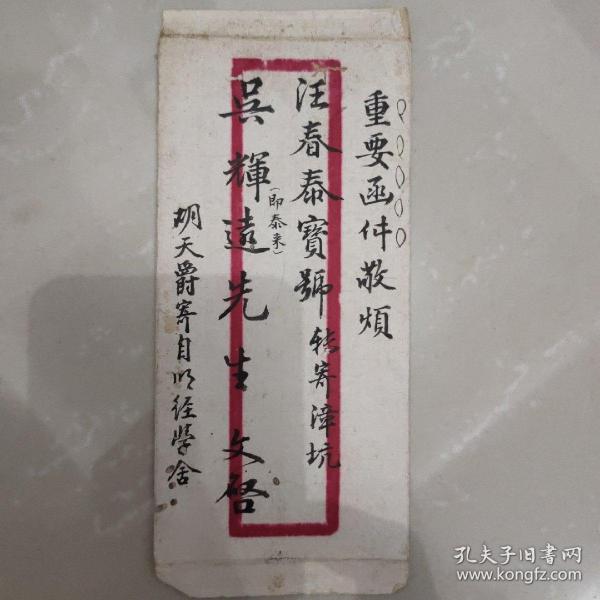 重要函件敬煩
汪春泰寶號轉寄漳坑
吳輝遠先生 文啓
（即泰来）
胡天爵寄自明经學舍
孔夫子旧书网
www.kongfz.com